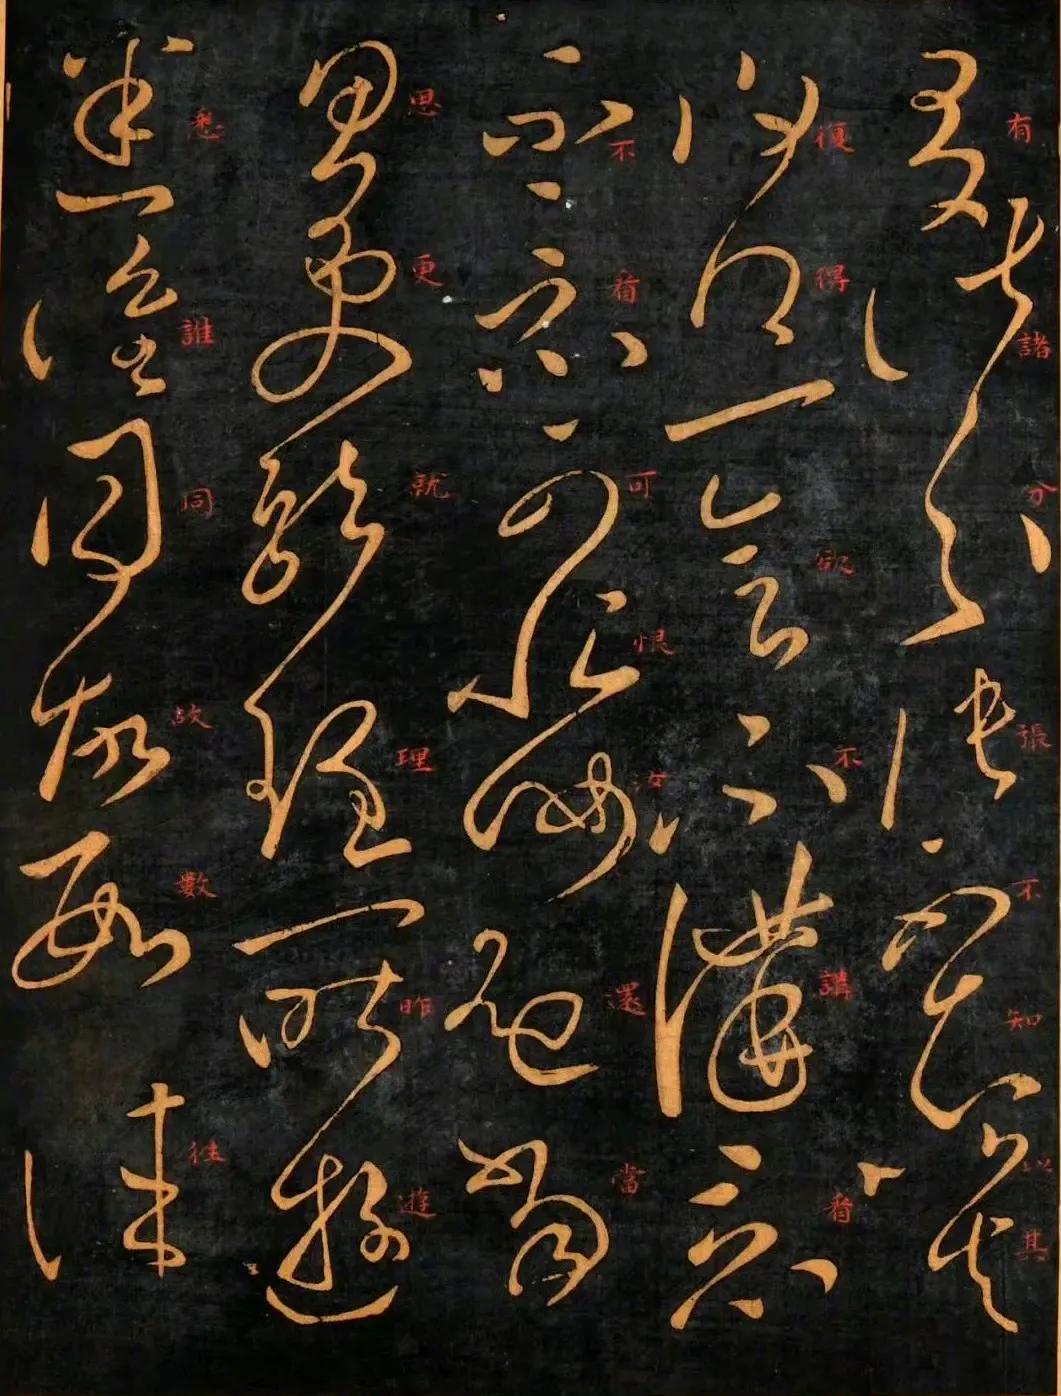 有諸分張不知以其
復得欲不講看
不看可恨汝還當
思更就理昨遊
悉誰同故數往